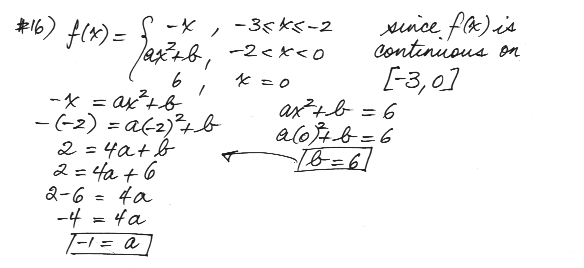 #16) f(x) = { -x , -3≤x≤-2
ax²+b, -2<x<0
6 , x=0
since f(x) is
continuous on
[-3,0]
-x = ax²+b
-(-2) = a(-2)²+b
2 = 4a+b
2 = 4a+6
2-6 = 4a
-4 = 4a
-1 = a
ax²+b = 6
a(0)²+b = 6
b = 6